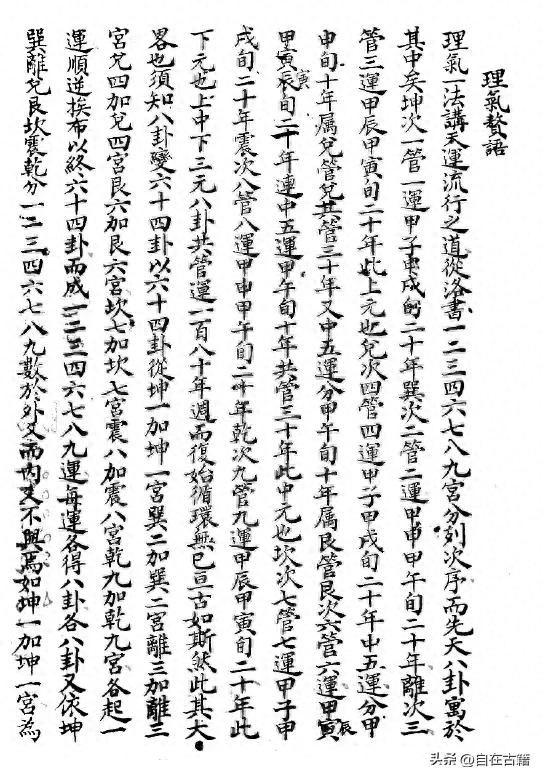 理氣贅語
理氣一法講天運流行之道從洛書一二三四六七八九宮分列次序而先天八卦寓於
其中矣坤次一管一運甲子甲戌旬二十年巽次二管二運甲申甲午旬二十年離次三
管三運甲辰甲寅旬二十年此上元也兌次四管四運甲子甲戌旬二十年中五運分甲
申旬十年属兌管兌其管三十年又中五運分甲午旬十年属艮管艮次六管六運甲寅
辰
甲寅辰旬二十年連中五運甲午旬十年共管三十年此中元也坎次七管七運甲子甲
寅
戌旬二十年震次八管八運甲申甲午旬二十年乾次九管九運甲辰甲寅旬二十年此
下元也上中下三元八卦共管運一百八十年週而復始循環無已亘古如斯然此其大
畧也須知八卦變六十四卦以六十四卦從坤一加坤一宮巽二加巽二宮離三加離三
宮兌四加兌四宮艮六加艮六宮坎七加坎七宮震八加震八宮乾九加乾九宮各起一
運順逆挨布以終六十四卦而成一二三四六七八九運每運各得八卦各八卦又依坤
巽離兌艮坎震乾分一二三四六七八九數於外爻而内爻不與焉如坤一加坤一宮為
头条 @自在古籍